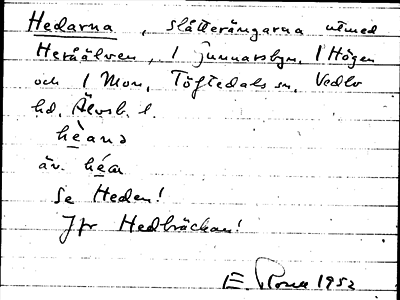 Hedarna, slåtterängarna utmed
Herråälven, i Gunnarsbyn, i Högen
och i Mon, Töftedals sn, Vedbo
hd, Älvsb. l.
hèanɔ
äv. héa
Se Heden!
Jfr Hedbräckan!
E 1952